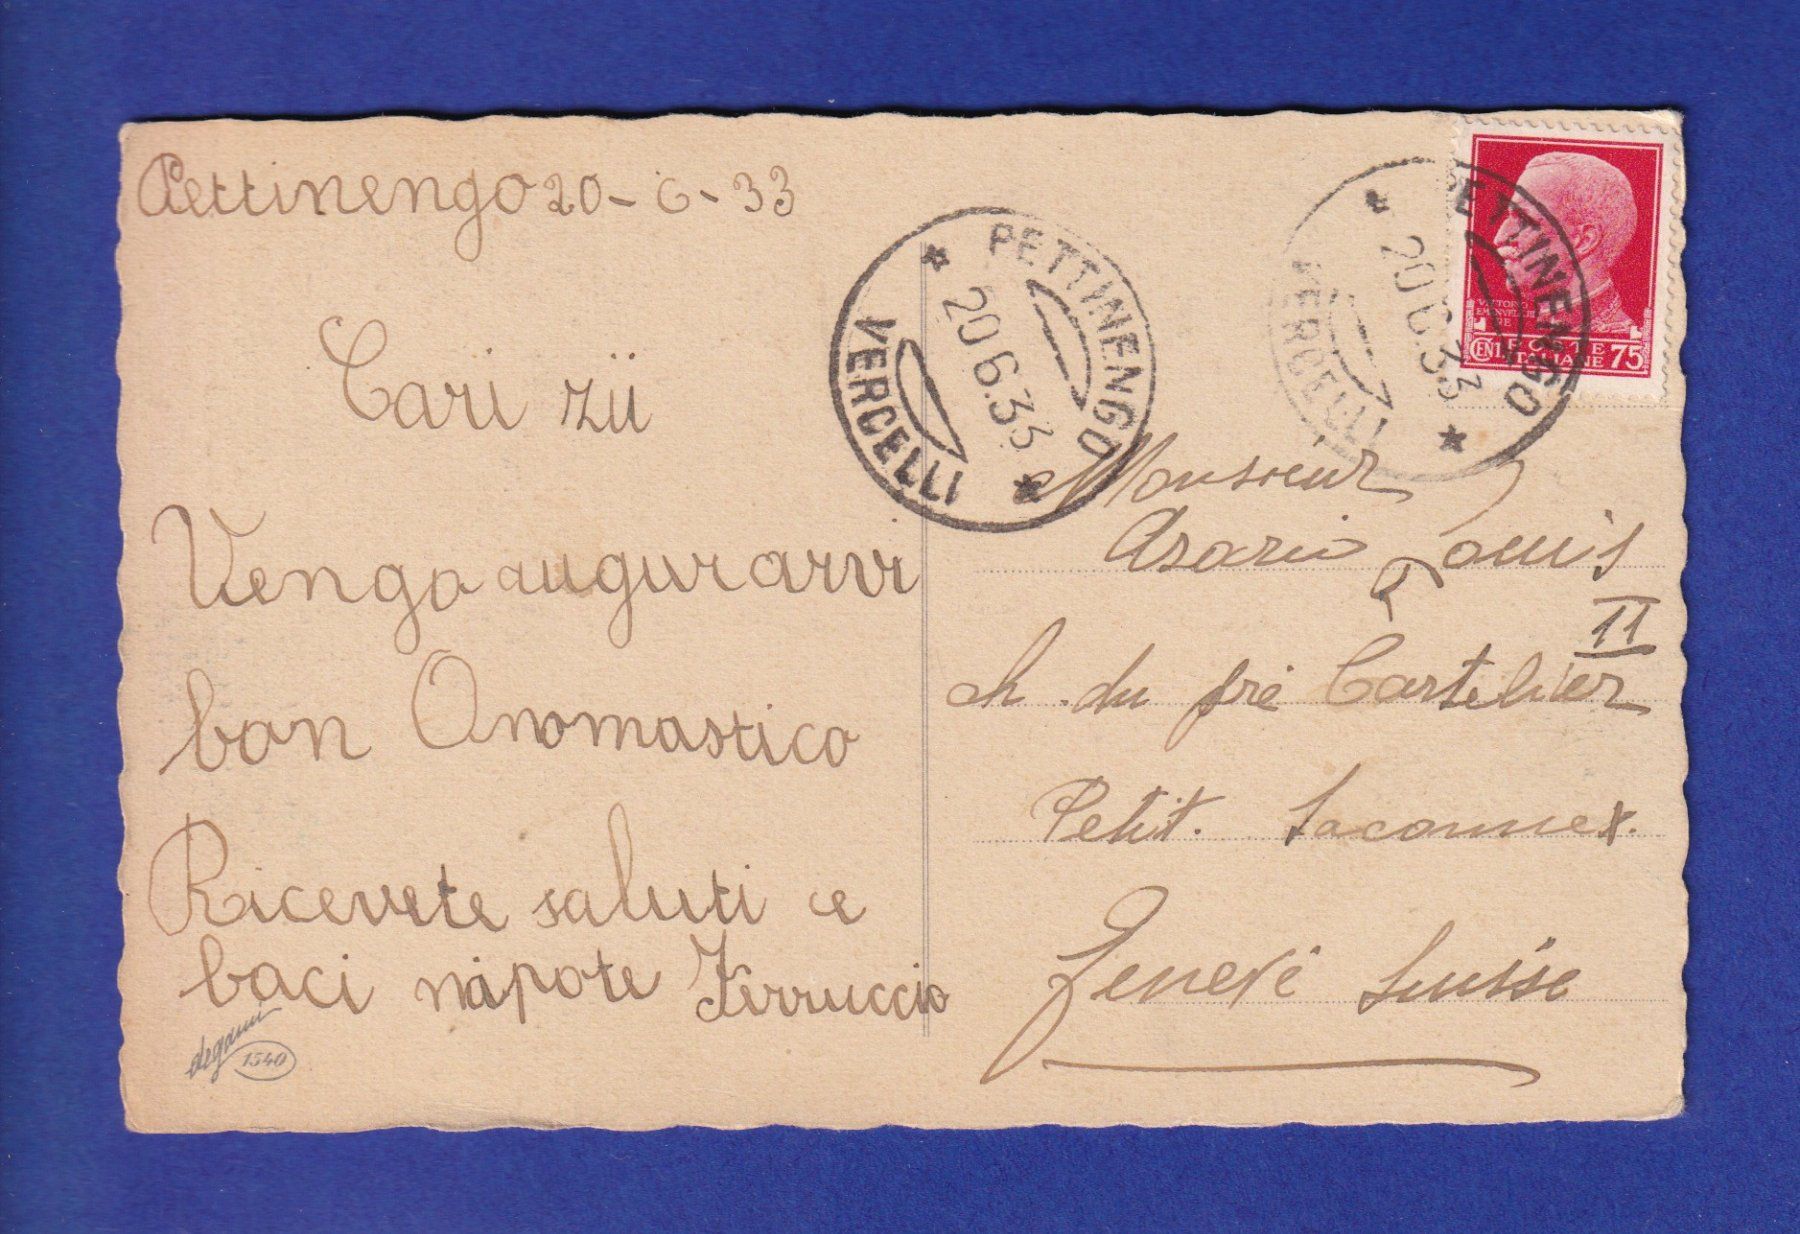 Pettinengo 20-6-33
Cari zii
Vengo augurarvi
bon Onomastico
Ricevete saluti e
baci nipote Ferruccio
degami
1540
PETTINENGO
20 6.33
VERCELLI
PETTINENGO
20 6.33
VERCELLI
VITTORIO
EMANVELE III
RE
POSTE
ITALIANE
CENT 75
Monsieur
Asario Louis
11
ch. du pré Cartelier
Petit. Saconnex.
Genevé Suisse